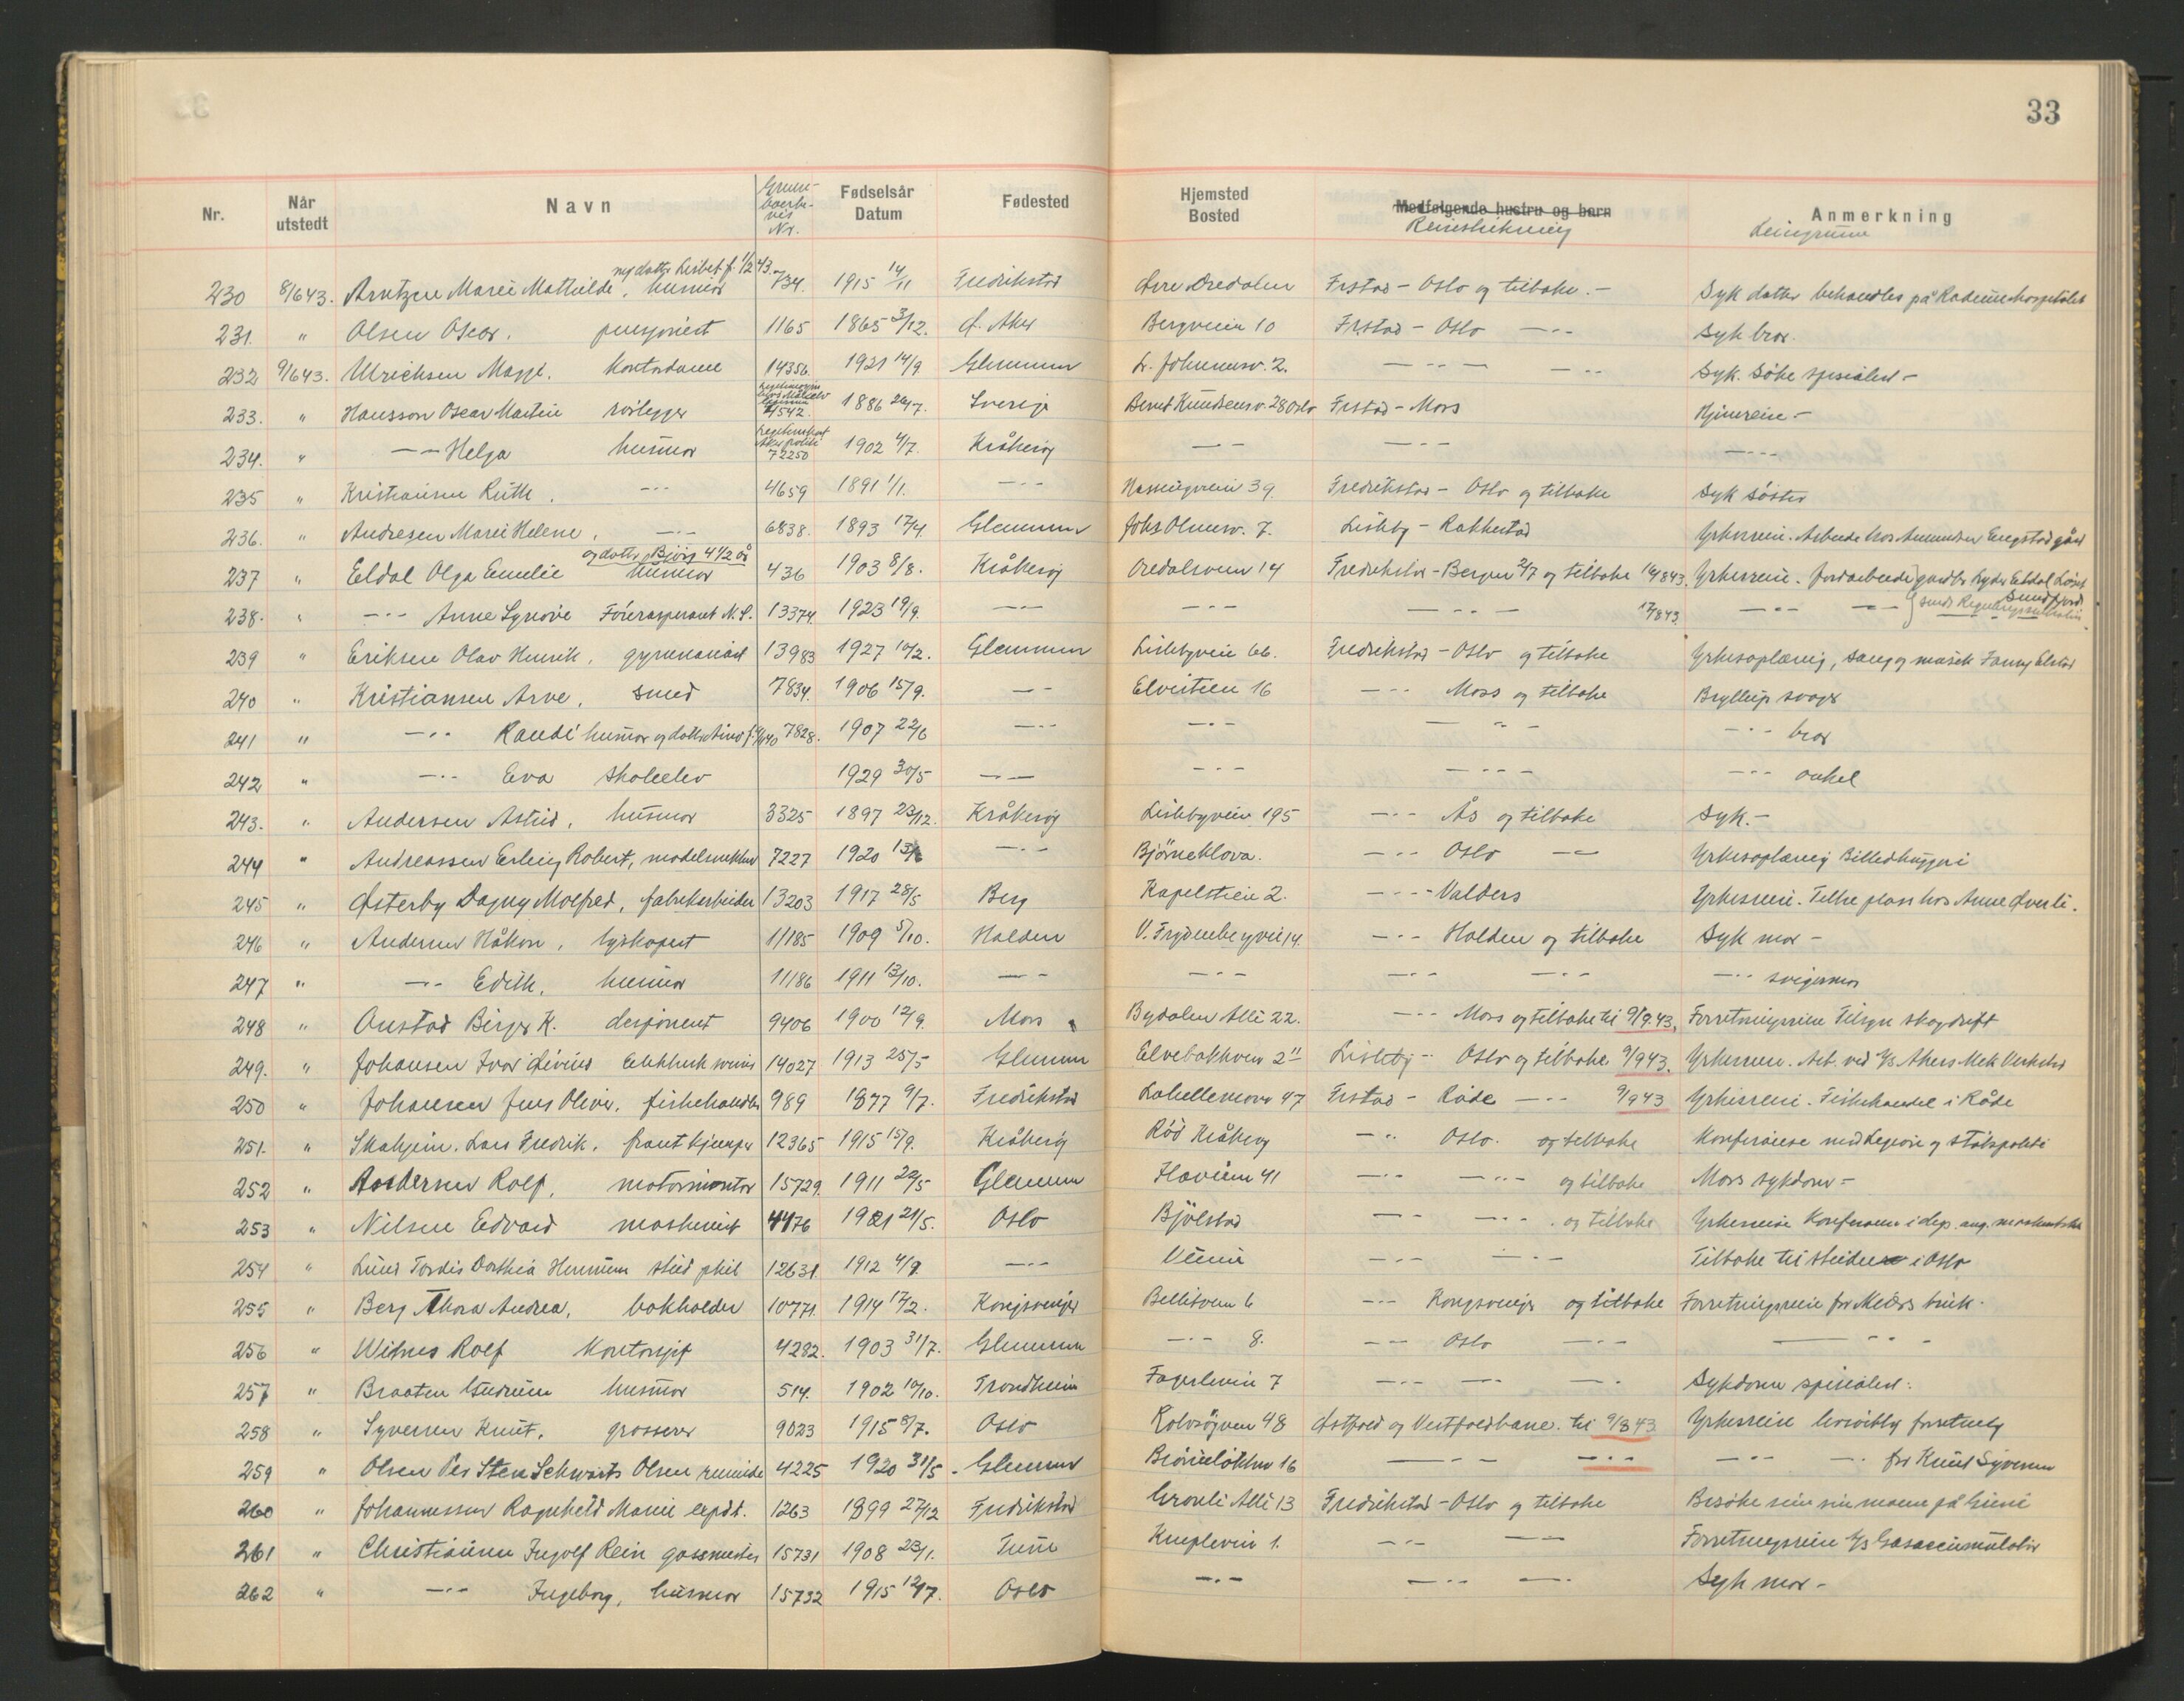 33
Nr. Når utstedt Navn Grense-boerb-vis Nr. Fødselsår Datum Fødested Hjemsted Bosted Medfølgende hustru og barn Reisestrekning Anmerkning
og datter Lisbet f. 1/2 43.
230 8/643. Arntzen Marie Mathilde, husmor 734. 1915 14/11 Fredrikstad Øvre Oredalen Frstad - Oslo og tilbake. - Syk datter behandles på Radiumhospitalet
231. " Olsen Oscar. pensjonist 1165 1865 3/12. Ø. Aker Bergveien 10 Frstad - Oslo -"- Syk bror.
232 9/643. Ulrichsen Margt. Kontordame 14356. 1921 14/9 Glemmen L. Johannesv. 2. -"- -"- Syk. Søke spesialist -
233. " Hansson Oscar Martin rørlegger 4542. 1886 26/7. Sverige Bernt Knudsensv. 28 Oslo Frstad - Moss Hjemreise -
234. " -"- Helga husmor 72250 1902 4/7. Kråkerøy -"- -"- -"-
235 " Kristiansen Ruth, -"- 4659 1891 1/1. -"- Nassingveien 39 Fredrikstad - Oslo og tilbake Syk søster
236. " Andresen Marie Helene, -"- 6838. 1893 17/4. Glemmen Johs Olsensv. 7. Lisleby - Rakkestad Yrkesreise. Arbeide hos Amundsen Engstad gård
og datter Bivig 4 1/2 år
237 " Eldal Olga Emilie husmor 436 1903 8/8. Kråkerøy Oredalsveien 14 Fredrikstad - Bergen 2/7 og tilbake 16/843. Yrkesreise. Jordarbeide gardbr. Eldal Sundfjord
238. " -"- Anne Synøve Føreraspirant N.S. 13374 1923 19/9. -"- -"- -"- 17/843. -"- -"-
239 " Eriksen Olav Henrik, gymnasiast 13983 1927 10/2. Glemmen Lislebyveien 66. Fredrikstad - Oslo og tilbake Yrkesoplæring, sang og musikk Fanny Elstad
240 " Kristiansen Arve, smed 7834. 1906 15/9. -"- Elvestien 16 -"- Moss og tilbake Bryllup svoger
241 " -"- Randi husmor og datter 7828. 1907 22/6 -"- -"- -"- -"- bror
242 " -"- Eva skoleelev 1929 30/5 -"- -"- -"- -"- onkel
243. " Andersen Astrid, husmor 3325 1897 23/12. Kråkerøy Lislebyveien 195 -"- Ås og tilbake Syk. -
244 " Andreassen Erling Robert, modelsnekker 7227 1920 13/6 -"- Bjørneklova. -"- Oslo -"- Yrkesoplæring Billedhuggeri
245 " Østerby Dagny Molfred, fabrikarbeider 13203 1917 28/5 Berg Kapelstien 2. -"- Valders Yrkesreise. Tiltre plass hos Anne Øverli.
246 " Andersen Håkon, typograf 11185 1909 5/10. Halden V. Frydenbergvei 14. -"- Halden og tilbake Syk mor -
247 " -"- Edith, husmor 11186 1911 13/10. -"- -"- -"- -"- -"- svigermor
248 " Onstad Birger K. disponent 9406 1900 12/9. Moss Bydalen Allé 22. -"- Moss og tilbake til 9/9.43. Forretningsreise Tilsyn skogdrift
249. " Johansen Ivar Eivind Elektrisk sveiser 14027 1913 25/5 Glemmen Elvebakkveien 2 II Lisleby - Oslo og tilbake 9/943. Yrkesreise. Arb. ved A/S Akers Mek Verksted
250 " Johansen Jens Oliver, fiskehandler 989 1877 9/7. Fredrikstad Labellemoveien 47 Frstad - Råde -"- 9/943 Yrkesreise. Fiskehandel i Råde
251. " Skahjem. Lars Fredrik, frontkjemper 12365 1915 15/9. Kråkerøy Rød Kråkerøy -"- Oslo. og tilbake Konferanse med Legion og statspoliti
252 " Andersen Rolf, motormontør 15729. 1911 22/5 Glemmen Haveien 41 -"- -"- og tilbake Mors sykdom -
253 " Nilsen Edvard maskinist 4476 1921 21/5. Oslo Bjølstad -"- -"- og tilbake Yrkesreise Konferanse i dep. ang.
254 " Lund Tordis Dorthea Hermine stud phil 12631 1912 4/9. -"- Veum -"- -"- Tilbake til studiene i Oslo
255 " Berg Thora Andrea, bokholder 10771. 1914 17/2. Kongsvinger Bellitveien 6 -"- Kongsvinger og tilbake Forretningsreise for bruk.
256 " Witnes Rolf Kontorsjef 4282. 1903 31/7. Glemmen -"- 8. -"- Oslo -"- -"-
257 " Braaten Gudrun husmor 514. 1902 10/10. Trondheim Fagerliveien 7 -"- -"- -"- Sykdom spesialist.
258 " Syversen Knut, grosserer 9023 1915 8/7. Oslo Rolvsøyveien 48 Østfold og Vestfoldbane. til 9/843 Yrkesreise forretning
259 " Olsen Per Sten Schwartz Olsen reisende 4225 1920 31/5. Glemmen Bjørneløkken 16 -"- -"- -"- -"- for Knut Syversen
260 " Johannessen Ragnhild Marie expdt. 1263 1899 27/12 Fredrikstad Gronli Allé 13 Fredrikstad - Oslo og tilbake Besøke sin mann på Grini
261 " Christiansen Ingolf Rein gassmester 15731 1908 23/1. Tune Knipleveien 1. -"- -"- Forretningsreise A/S Gasaccumulator
262 " -"- Ingeborg, husmor 15732 1915 12/7. Oslo -"- -"- -"- Syk mor -